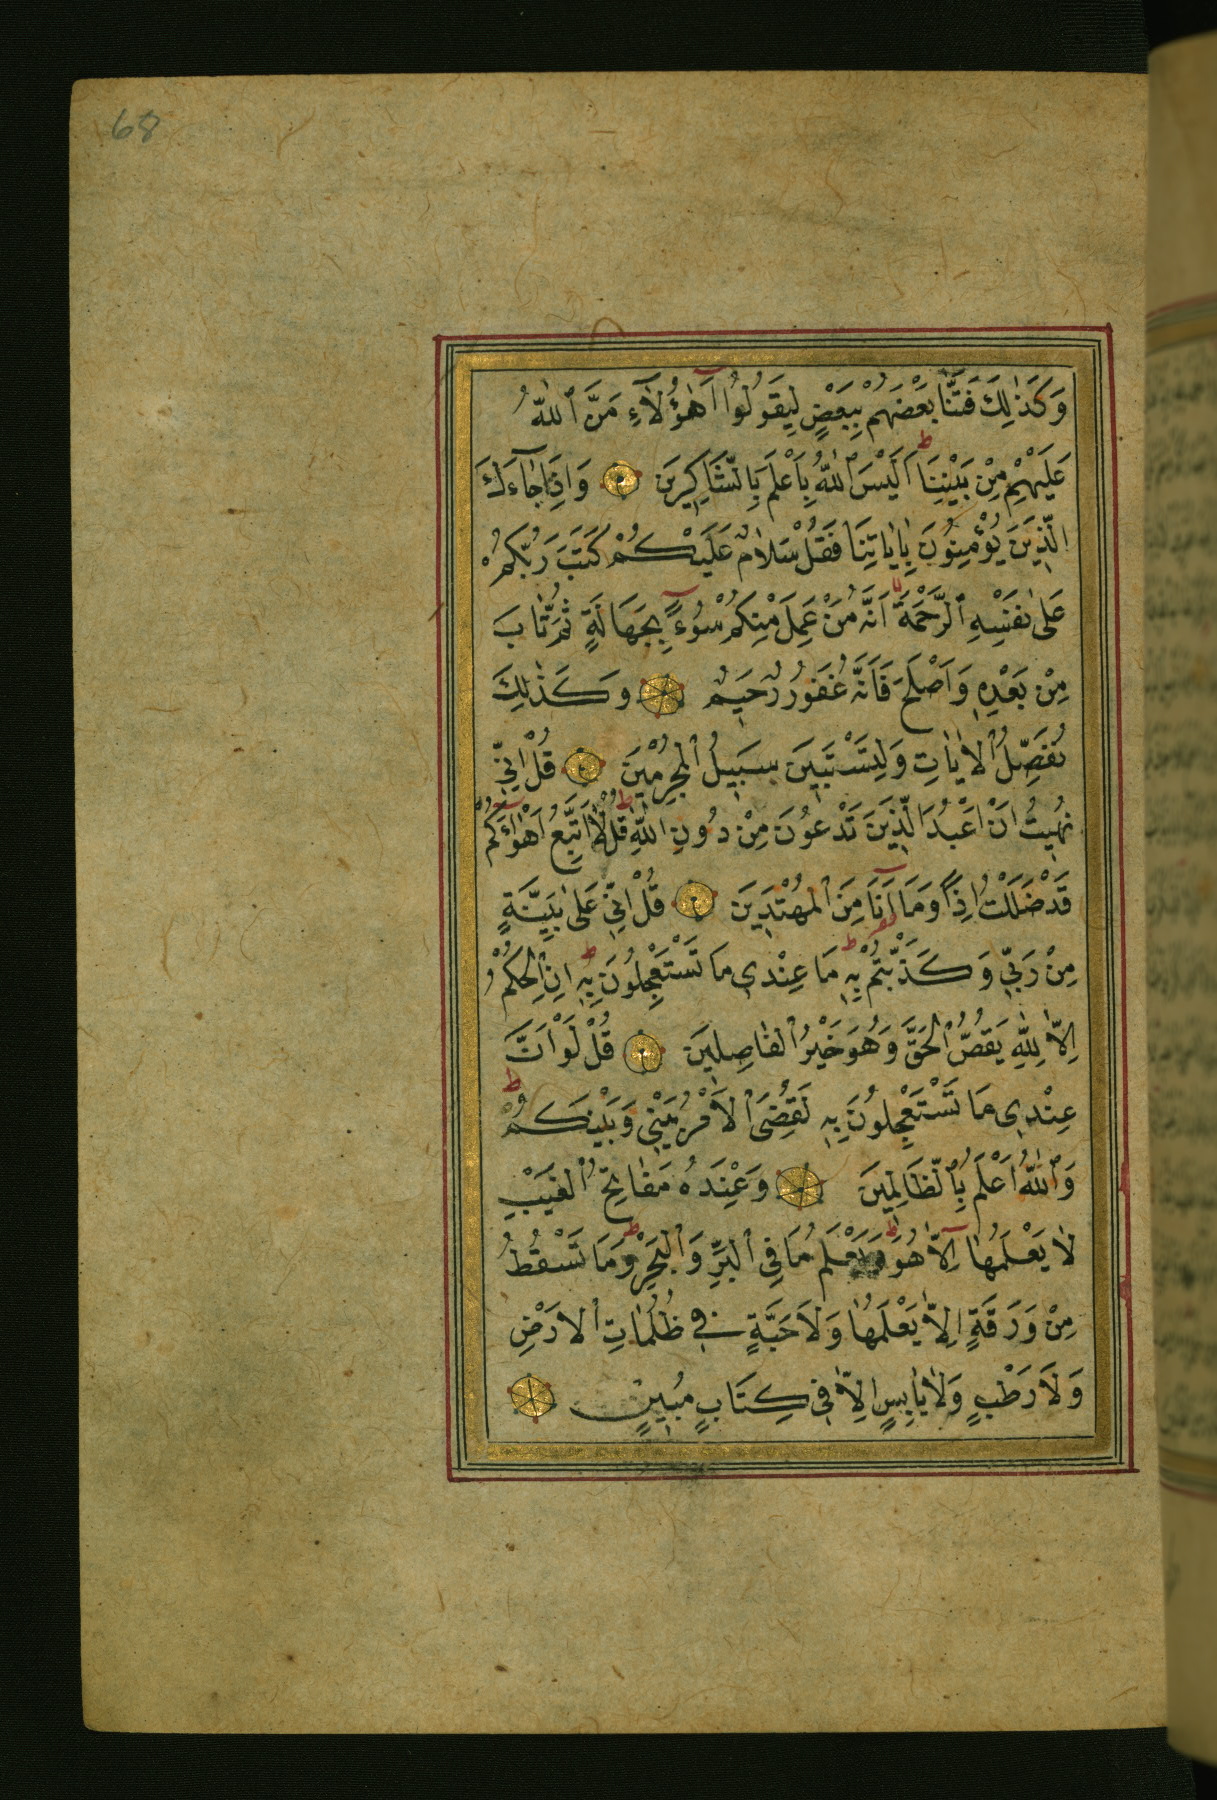 68
وَكَذٰلِكَ فَتَنَّا بَعْضَهُمْ بِبَعْضٍ لِيَقُولُوا اَهٰٓؤُلَآءِ مَنَّ اللّٰهُ
عَلَيْهِمْ مِنْ بَيْنِنَا ط اَلَيْسَ اللّٰهُ بِاَعْلَمَ بِالشَّاكِرِينَ وَاِذَا جَآءَكَ
الَّذِينَ يُؤْمِنُونَ بِاٰيَاتِنَا فَقُلْ سَلَامٌ عَلَيْكُمْ كَتَبَ رَبُّكُمْ
عَلٰى نَفْسِهِ الرَّحْمَةَ لا اَنَّهُ مَنْ عَمِلَ مِنْكُمْ سُوٓءً بِجَهَالَةٍ ثُمَّ تَابَ
مِنْ بَعْدِهِ وَاَصْلَحَ فَاَنَّهُ غَفُورٌ رَحِيمٌ وَكَذٰلِكَ
نُفَصِّلُ الْاٰيَاتِ وَلِتَسْتَبِينَ سَبِيلُ الْمُجْرِمِينَ قُلْ اِنِّي
نُهِيتُ اَنْ اَعْبُدَ الَّذِينَ تَدْعُونَ مِنْ دُونِ اللّٰهِ ط قُلْ لَا اَتَّبِعُ اَهْوَآءَكُمْ
قَدْ ضَلَلْتُ اِذًا وَمَٓا اَنَا مِنَ الْمُهْتَدِينَ قُلْ اِنِّي عَلٰى بَيِّنَةٍ
مِنْ رَبِّي وَكَذَّبْتُمْ بِهِ ط مَا عِنْدِي مَا تَسْتَعْجِلُونَ بِهِ ط اِنِ الْحُكْمُ
اِلَّا لِلّٰهِ يَقُصُّ الْحَقَّ وَهُوَ خَيْرُ الْفَاصِلِينَ قُلْ لَوْ اَنَّ
عِنْدِي مَا تَسْتَعْجِلُونَ بِهِ لَقُضِيَ الْاَمْرُ بَيْنِي وَبَيْنَكُمْ ط
وَاللّٰهُ اَعْلَمُ بِالظَّالِمِينَ وَعِنْدَهُ مَفَاتِحُ الْغَيْبِ
لَا يَعْلَمُهَٓا اِلَّا هُوَ ط وَيَعْلَمُ مَا فِي الْبَرِّ وَالْبَحْرِ ط وَمَا تَسْقُطُ
مِنْ وَرَقَةٍ اِلَّا يَعْلَمُهَا وَلَا حَبَّةٍ فِي ظُلُمَاتِ الْاَرْضِ
وَلَا رَطْبٍ وَلَا يَابِسٍ اِلَّا فِي كِتَابٍ مُبِينٍ